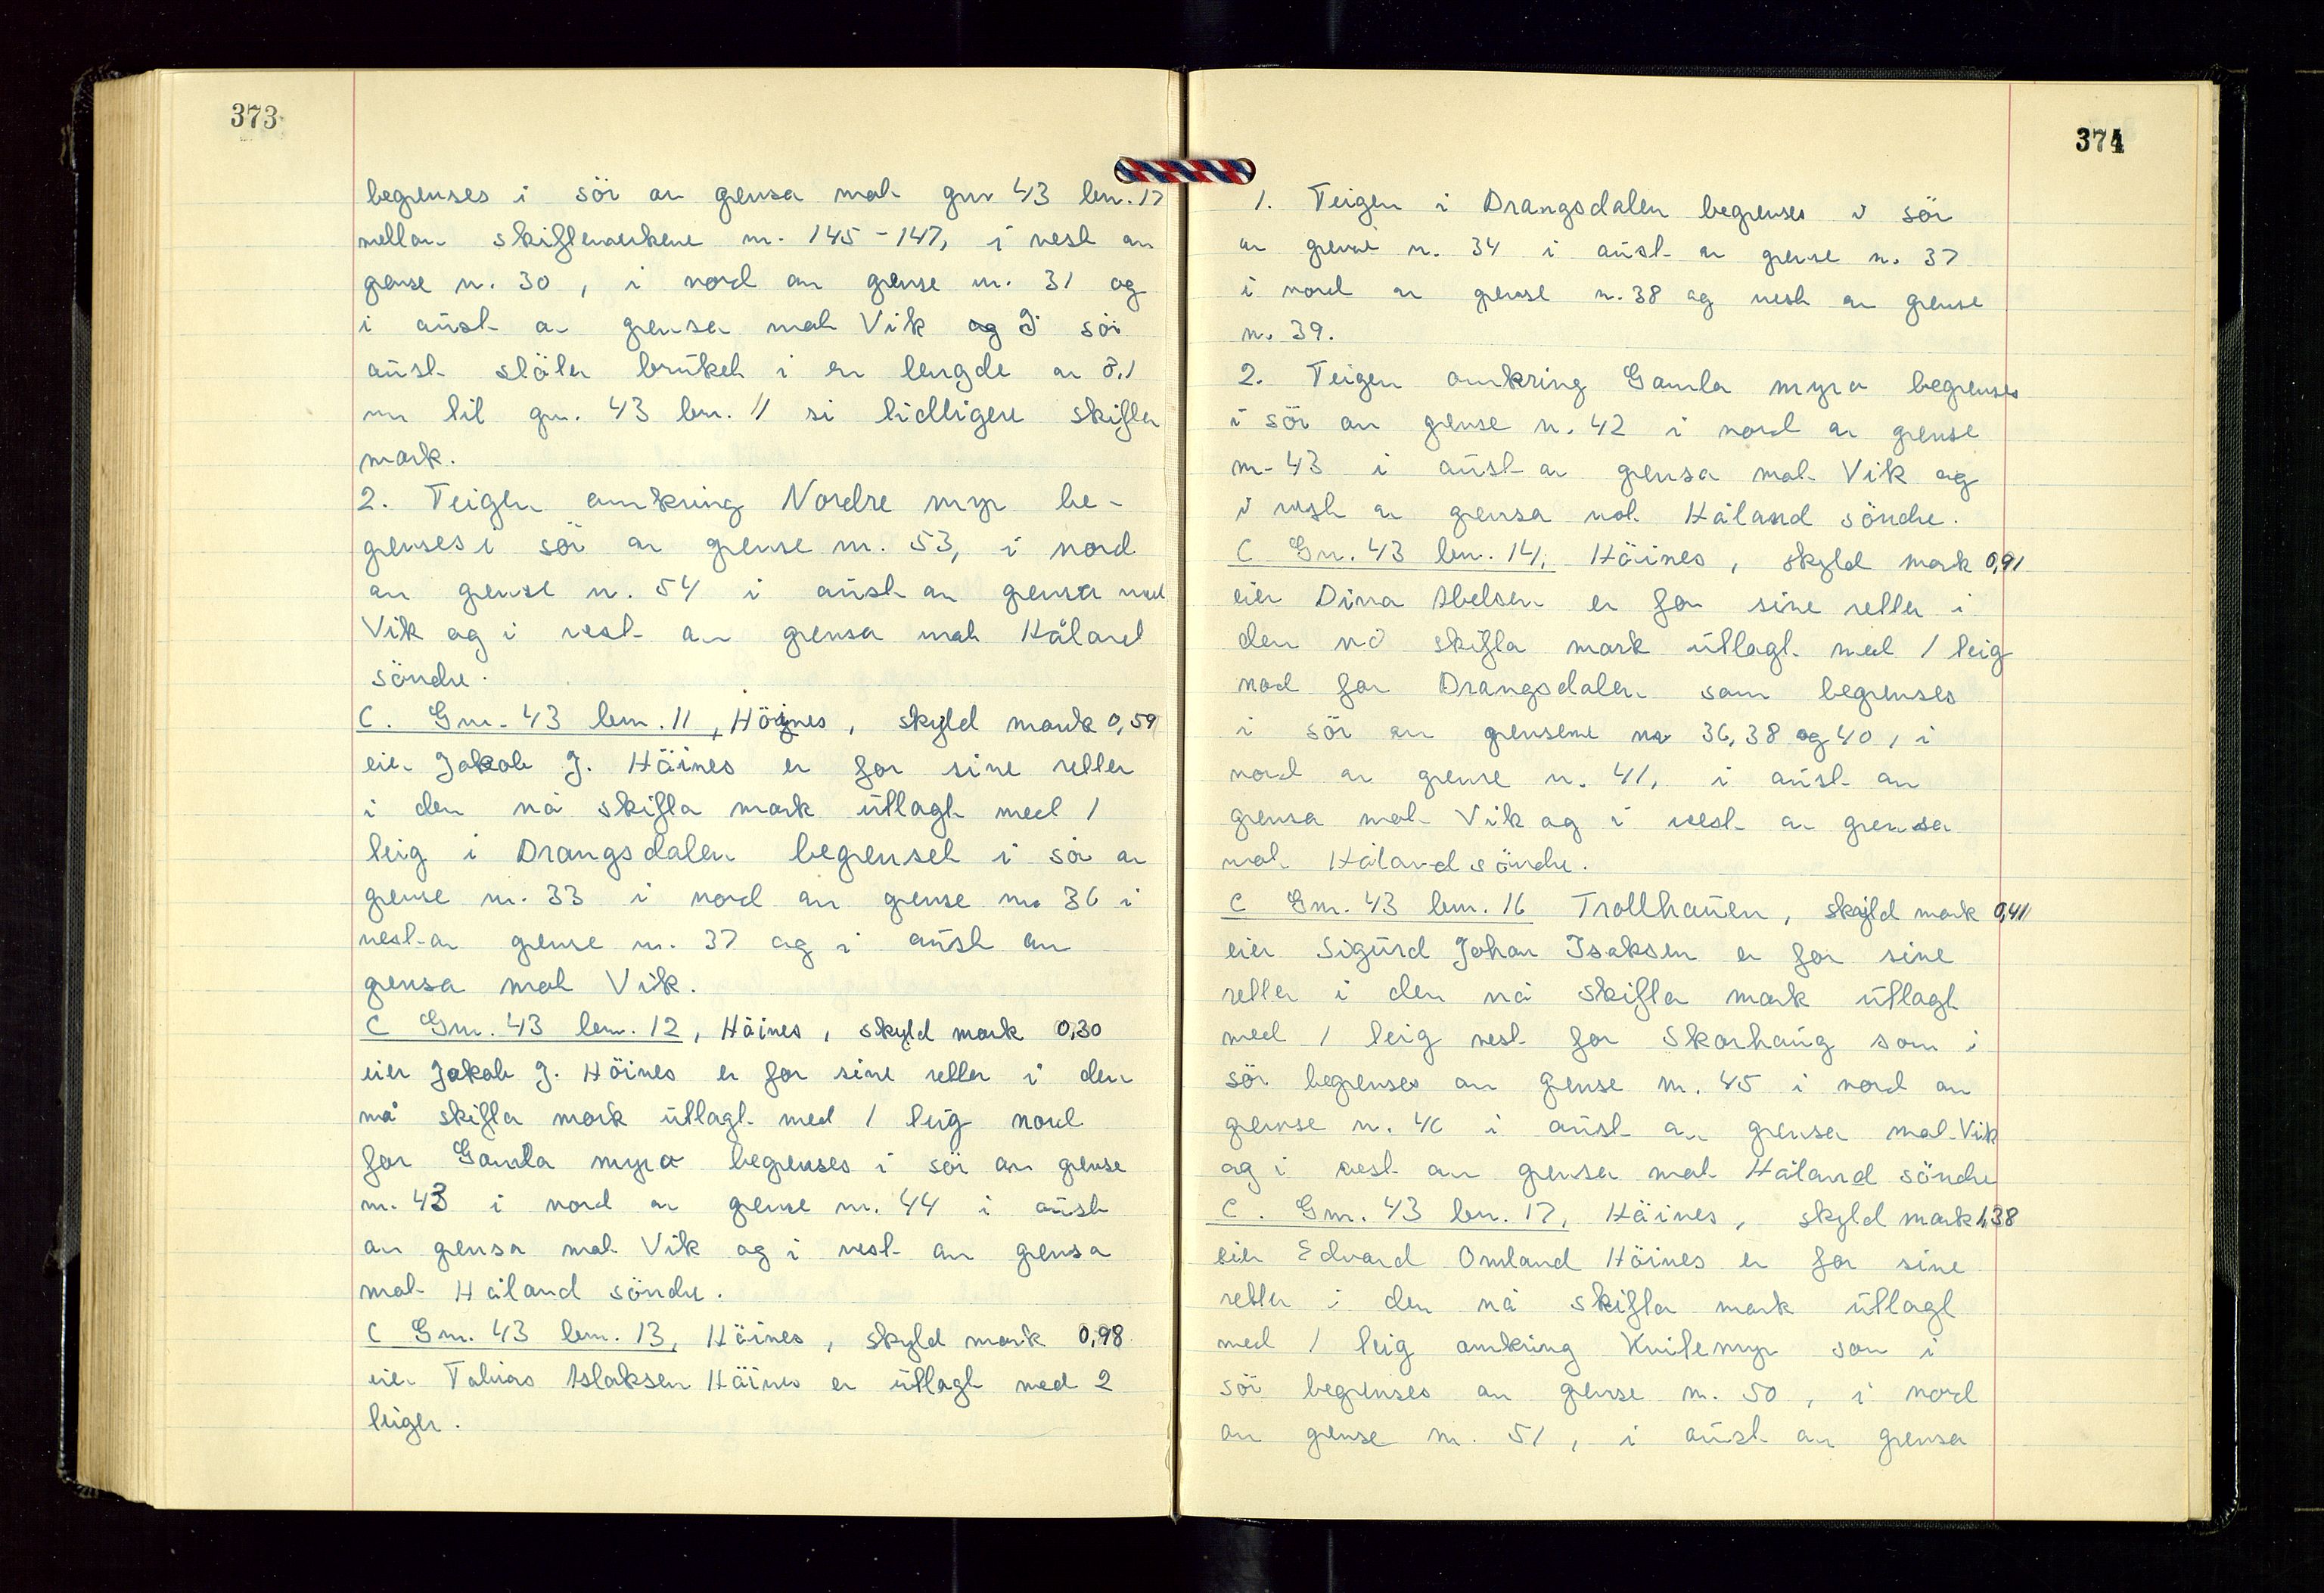 373
begrenses i sör av grensa mot gnr 43 bnr. 17
mellom skiftemerkene nr. 145-147, i vest av
grense nr. 30, i nord av grense nr. 31 og
i aust av grensa mot Vik og I sör
aust stöter bruket i en lengde av 8,1
m til gnr. 43 bnr. 11 si tidligere skifta
mark.
2. Teigen omkring Nordre myr be-
grenses i sör av grense nr. 53, i nord
av grense nr. 54 i aust av grensa mot
Vik og i vest av grensa mot Håland
söndre.
C. Gnr. 43 bnr. 11, Höines, skyld mark 0,59
eier Jakob J. Höines er for sine retter
i den nå skifta mark utlagt med 1
teig i Drangsdalen begrenset i sör av
grense nr. 33 i nord av grense nr. 36 i
vest av grense nr. 37 og i aust av
grensa mot Vik.
C Gnr. 43 bnr. 12, Höines, skyld mark 0,30
eier Jakob J. Höines er for sine retter i den
nå skifta mark utlagt med 1 teig nord
for Gamla myra begrenses i sör av grense
nr. 43 i nord av grense nr. 44 i aust
av grensa mot Vik og i vest av grensa
mot Håland söndre.
C Gnr. 43 bnr. 13, Höines, skyld mark 0,98
eier Tobias Aslaksen Höines er utlagt med 2
teiger.
374
1. Teigen i Drangsdalen begrenses i sör
av grense nr. 34 i aust av grense nr. 37
i nord av grense nr. 38 og vest av grense
nr. 39.
2. Teigen omkring Gamla myra begrenses
i sör av grense nr. 42 i nord av grense
nr. 43 i aust av grensa mot Vik og
i vest av grensa mot Håland söndre.
C Gnr. 43 bnr. 14, Höines, skyld mark 0,91
eier Dina Abelsen er for sine retter i
den nå skifta mark utlagt med 1 teig
nord for Drangsdalen som begrenses
i sör av grensene nr 36, 38 og 40, i
nord av grense nr. 41, i aust av
grensa mot Vik og i vest av grensa
mot Håland söndre.
C Gnr. 43 bnr. 16 Trollhauen, skyld mark 0,41
eier Sigurd Johan Isaksen er for sine
retter i den nå skifta mark utlagt
med 1 teig vest for Skarhaug som i
sör begrenses av grense nr. 45 i nord av
grense nr. 46 i aust av grensa mot Vik
og i vest av grensa mot Håland söndre
C. Gnr. 43 bnr. 17, Höines, skyld mark 1,38
eier Edvard Omland Höines er for sine
retter i den nå skifta mark utlagt
med 1 teig omkring Kvitemyr som i
sör begrenses av grense nr. 50, i nord
av grense nr. 51, i aust av grensa